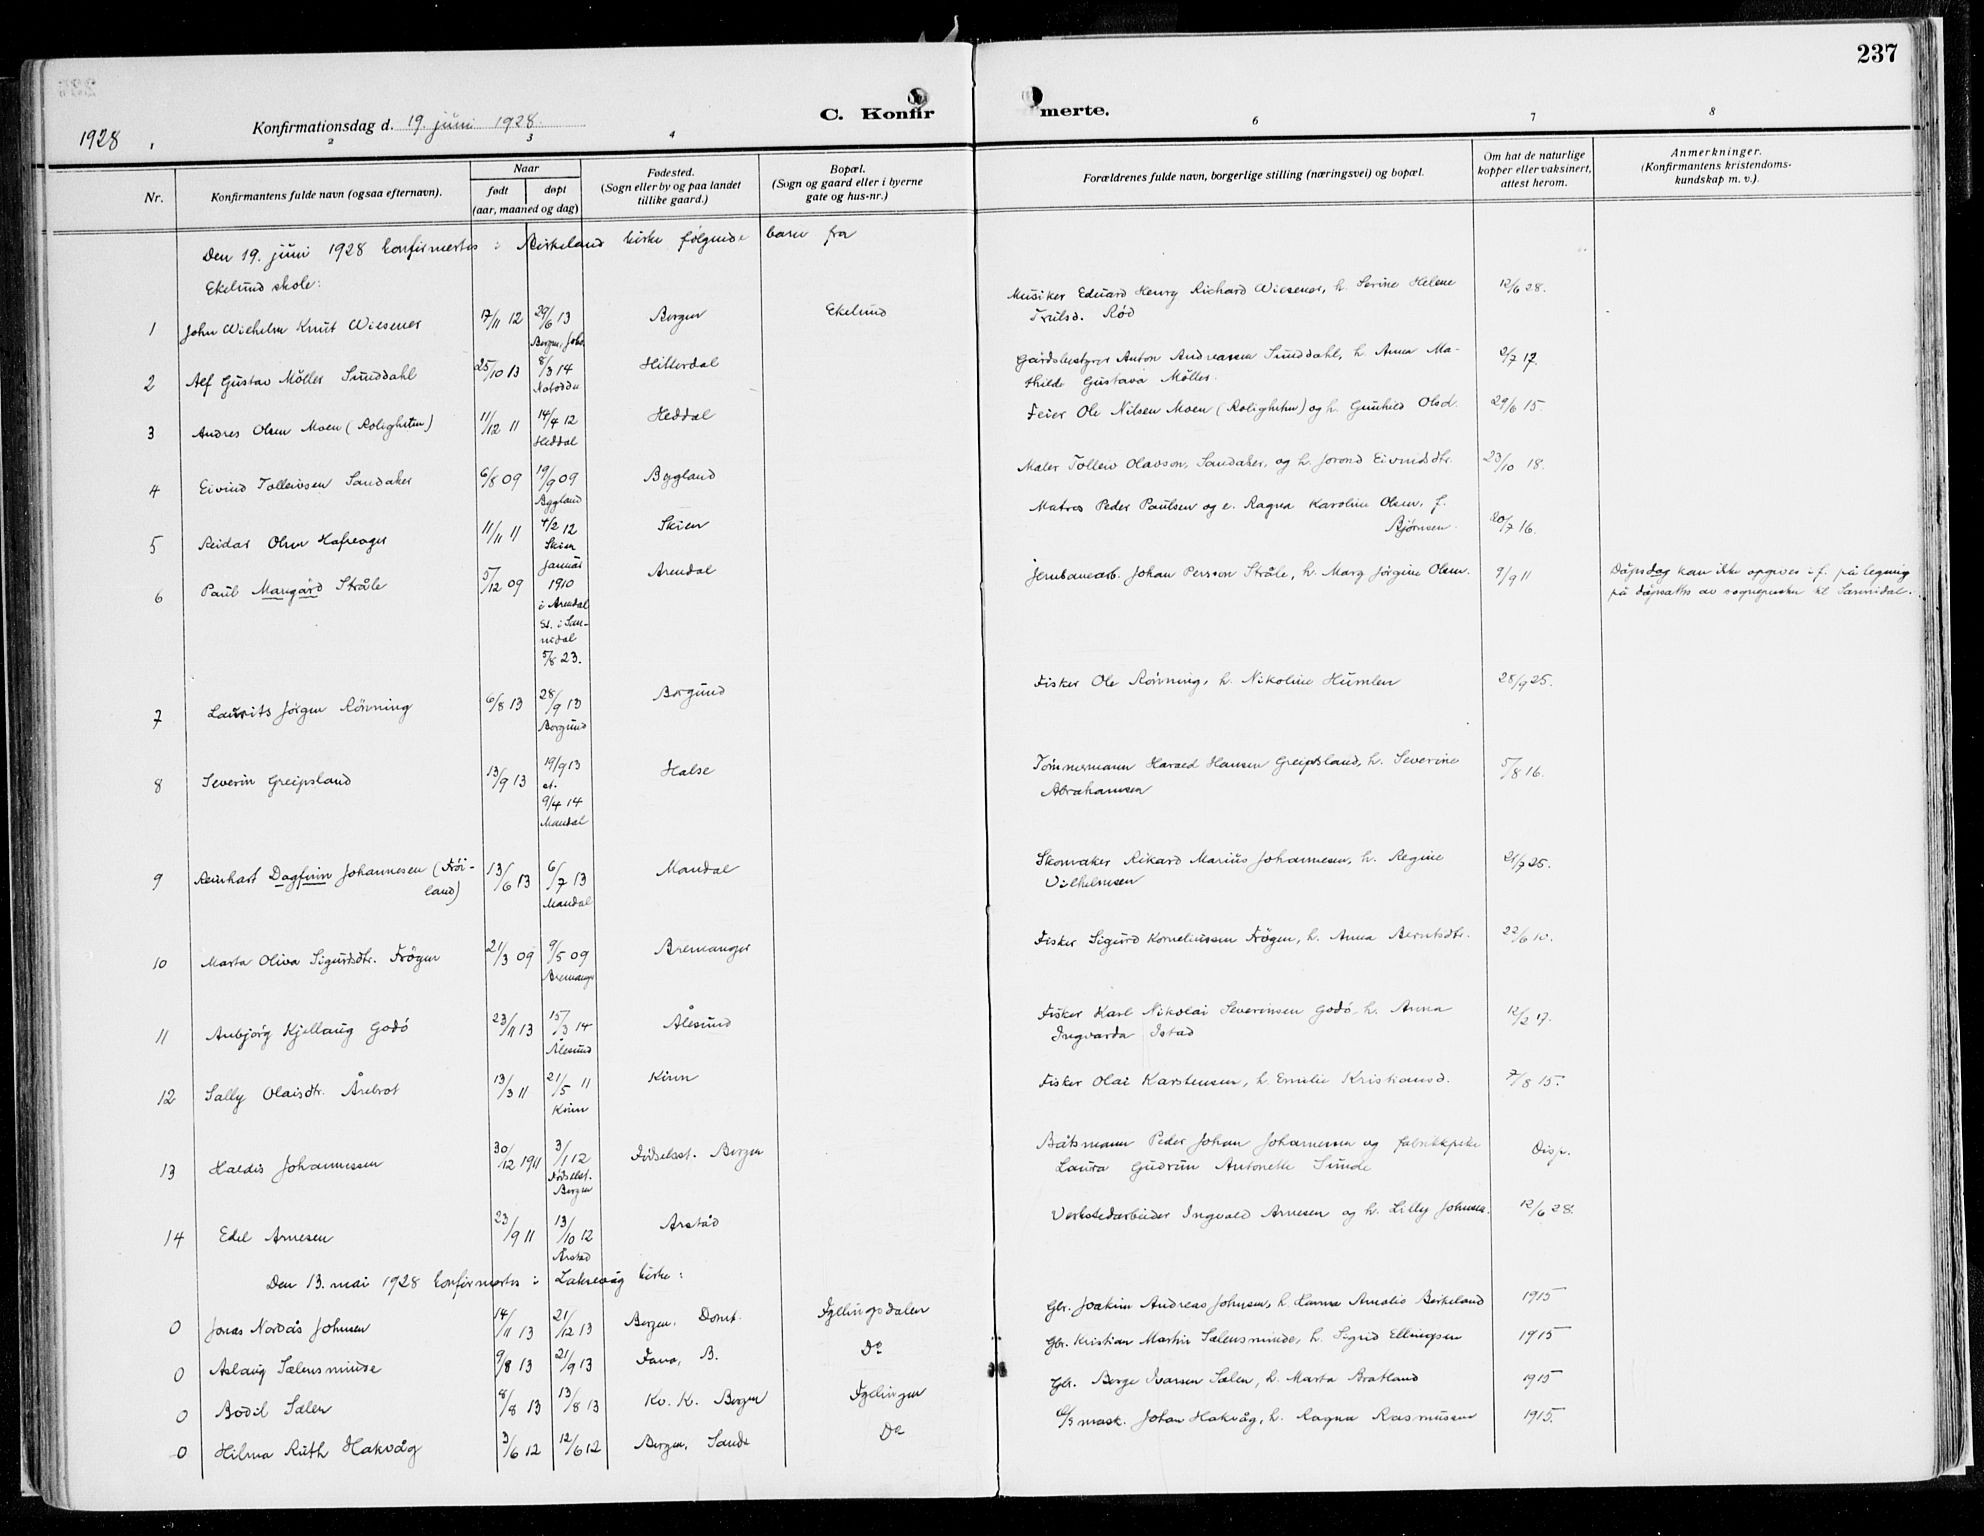 237
1928
Konfirmationsdag d. 19. juni 1928
C. Konfir merte.
1 2 3 4 6 7 8
Nr.
Konfirmantens fulde navn (ogsaa efternavn).
Naar
født døpt
(aar, maaned og dag)
Fødested.
(Sogn eller by og paa landet
tillike gaard.)
Bopæl.
(Sogn og gaard eller i byerne
gate og hus-nr.)
Forældrenes fulde navn, borgerlige stilling (næringsvei) og bopæl.
Om hat de naturlige
kopper eller vaksinert,
attest herom.
Anmerkninger.
(Konfirmantens kristendoms-
kundskap m. v.).
Den 19. juni 1928 konfirmertes i Birkeland kirke følgende barn fra
Ekelund skole:
1 John Wilhelm Knut Wiesener 17/11 12 29/6 13 Bergen Ekelund Musiker Eduard Henry Richard Wiesener, h. Serine Helene 12/6 28.
Bergen, Joh. Rød
2 Alf Gustav Möller Sunddahl 25/10 13 8/3 14 Hitterdal Gårdsbestyrer Anton Andreassen Sunddahl, h. Anna Ma- 2/7 17.
Notodden thilde Gustava Möller.
3 Andres Olsen Moen (Roligheten) 11/12 11 14/4 12 Heddal Feier Ole Nilsen Moen (Roligheten) og h. Gunhild Olsd. 29/6 15.
Heddal
4 Eivind Tolleivsen Sandaker 6/8 09 19/9 09 Bygland Maler Tolleiv Olavson, Sandaker, og h. Jorond Eivindsdtr. 23/10 18.
Bygland
5 Reidar Olsen Hafrager 11/11 11 4/2 12 Skien Matros Peder Paulsen og e. Ragna Karoline Olsen, f. 20/7 16.
Skien Bjørnsen.
6 Paul Margård Stråle 5/12 09 Januar Arendal Jernbanearb. Johan Persson Stråle, h. Marg Jørgine Olsen. 9/9 11 Dåpsdag kan ikke opgives i f. på legning
1910 på dåpsattest av sognepresten til Sannidal.
i Arendal
st. i San-
nidal
5/8 23.
7 Laurits Jørgen Rönning 6/8 13 28/9 13 Borgund Fisker Ole Rönning, h. Nikoline Humlen 28/9 25.
Borgund
8 Severin Greipsland 13/9 13 19/9 13 Halse Tömmermann Harald Hansen Greipsland, h. Severine 5/8 16.
st. Abrahamsen
9/4 14
Mandal
9 Reinhart Dagfinn Johannesen (Fröi- 13/6 13 6/7 13 Mandal Skomaker Rikard Marius Johannesen, h. Regine 21/7 25.
land) Mandal Vilhelmsen
10 Marta Oliva Sigurdsdtr. Frøyen 21/3 09 9/5 09 Bremanger Fisker Sigurd Korneliussen Frøyen, h. Anna Berntsdtr. 22/6 10.
Bremanger
11 Anbjörg Kjellaug Godö 23/11 13 15/3 14 Ålesund Fisker Karl Nikolai Severinsen Godö, h. Anna 12/2 17.
Ålesund Ingvarda Istad
12 Sally Olaisdtr. Årebrot 13/3 11 21/5 11 Kinn Fisker Olai Karstensen, h. Emilie Kristiansd. 7/8 15.
Kinn
13 Haldis Johannessen 30/12 1911 3/1 12 Födselsst. Bergen Båtsmann Peder Johan Johannessen og fabrikkpike Disp.
Födselsst. Laura Gudrun Antonette Sunde
Bergen
14 Edel Arnesen 23/9 11 13/10 12 Årstad Verkstedarbeider Ingvald Arnesen og h. Lilly Johnsen. 12/6 28.
Årstad
Den 13. mai 1928 konfirmertes i Laksevåg kirke:
0 Jonas Nordås Johnsen 14/11 13 21/12 13 Bergen, Domk. Fyllingsdalen Gbr. Joakim Andreas Johnsen, h. Hanna Amalie Birkeland 1915
0 Aslaug Sælensminde 9/8 13 21/9 13 Fana, B. Do Gbr. Kristian Martin Sælensminde, h. Sigrid Ellingsen 1915
0 Bodil Sælen 8/8 13 13/8 13 Kv. K. Bergen Fyllingen Gbr. Berge Ivarsen Sælen, h. Marta Bratland 1915
0 Hilma Ruth Hakvåg 3/6 12 12/6 12 Bergen, Sandv. Do mask. Johan Hakvåg, h. Ragna Rasmussen 1915.